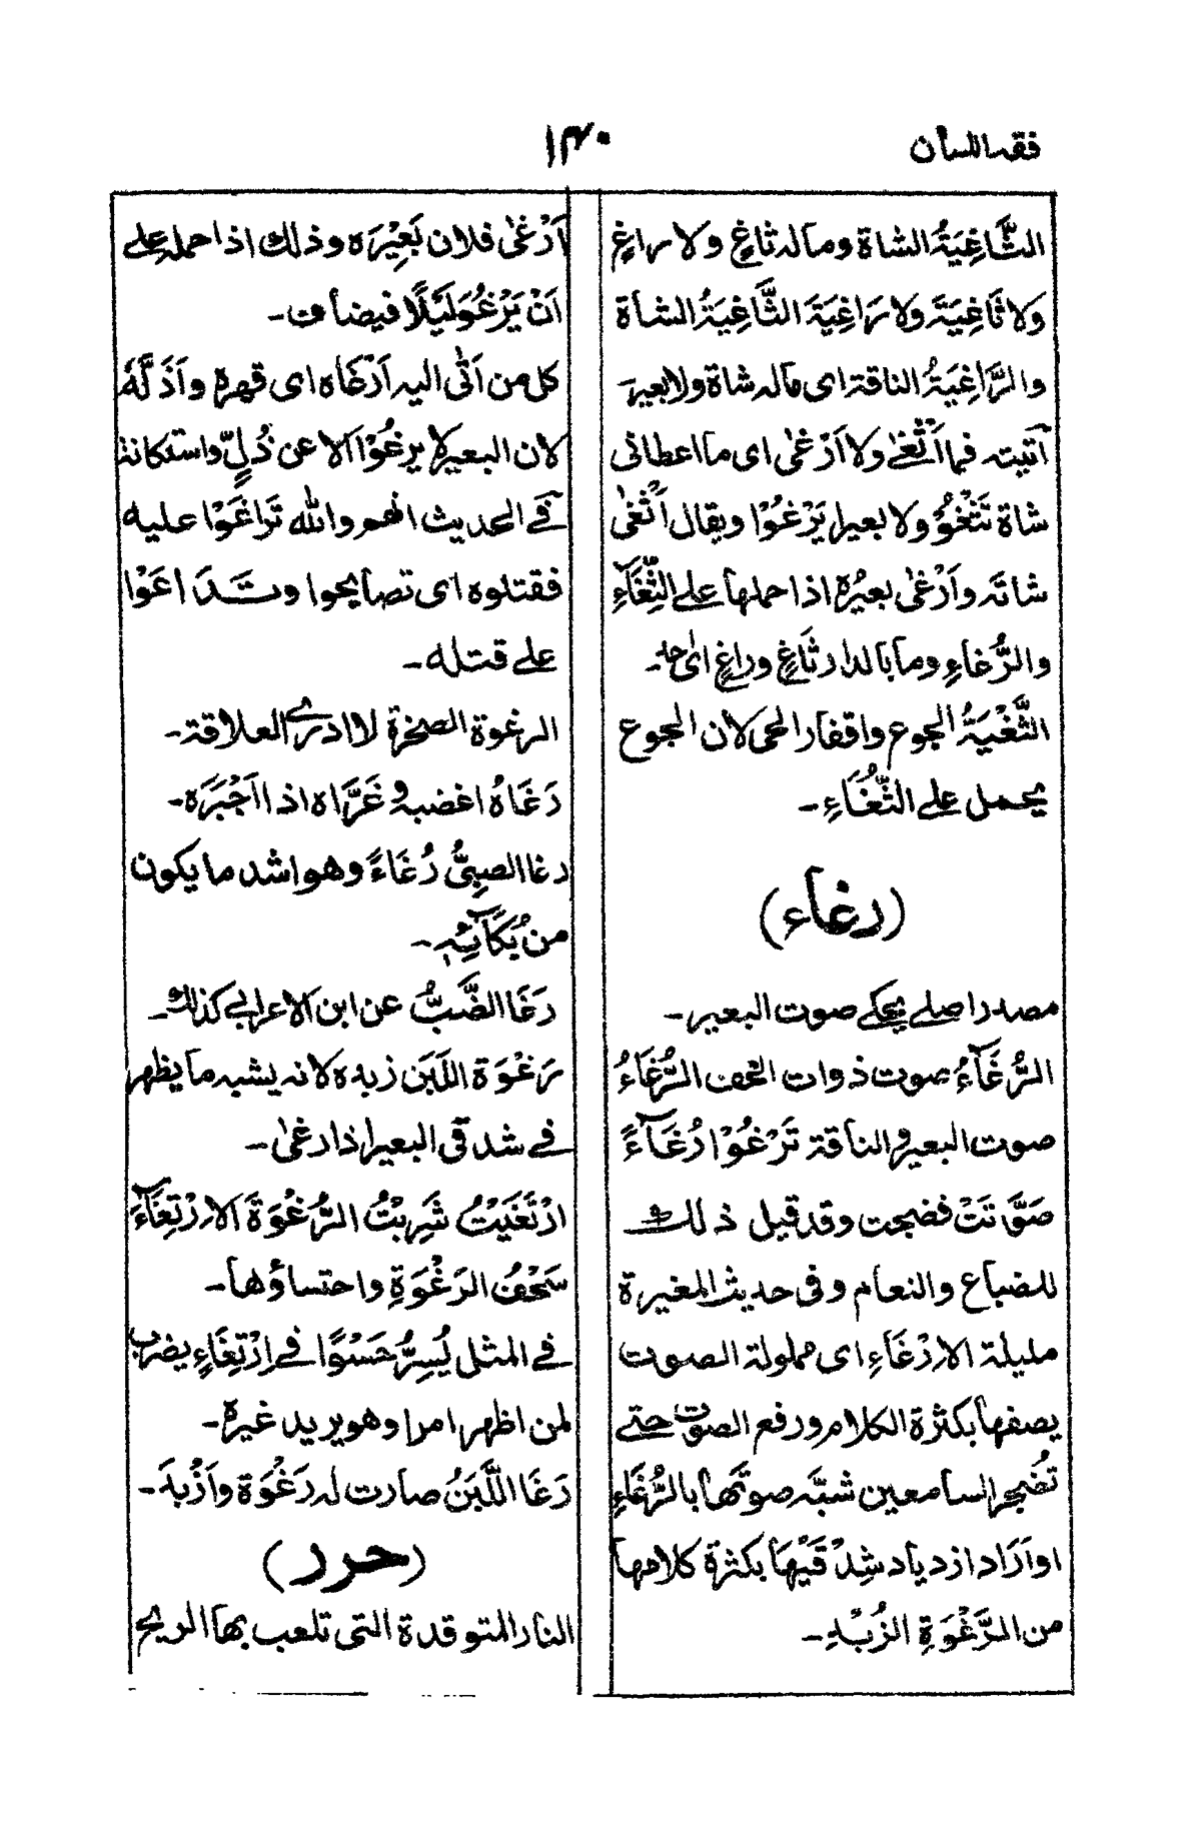 فقہ اللسان
۱۴۰
الثَّاغِيَةُ الشاة وماله ثاغٍ ولا راغٍ
ولا ثَاغِيَةَ ولا رَاغِيَةَ الثَّاغِيَةُ الشاة
والرَّاغِيَةُ الناقة اى ماله شاة ولا بعير۔
آتيته فما اَثْغٰے ولا اَرْغٰى اى ما اعطانى
شاة تَثْغُوْ ولا بعيرا يَرْغُوْا ويقال اَثْغٰى
شاته واَرْغٰى بعيرُه اذا حملها علے الثُّغَآءِ
والرُّغاءِ وما بالدار ثَاغٍ وراغٍ اى احد۔
الثَّغْيَةُ الجوع واقفار الحى لان الجوع
يحمل علے الثُّغَاءِ۔
(رغاء)
مصدر اصلے يحكے صوت البعير۔
الرُّغَآءُ صوت ذوات الخف الرُّغَاءُ
صوت البعير والناقة تَرْغُوْا رُغَآءً
صَوَّتَتْ فضجت وقد قيل ذلك
للضباع والنعام وفى حديث المغيرة
مليلة الارْغَاءِ اى مملولة الصوت
يصفها بكثرة الكلام ورفع الصوت حتے
تُضجر السامعين شبّه صوتها بالرُّغَاءِ
او اَرَاد ازدياد شِدْقَيْهَا بكثرة كلامها
من الرَّغْوَةِ الزُّبْدِ۔
اَرْغٰى فلان بَعِيْرَه وذلك اذا حمله علے
اَنْ يَرْغُوَ لَيْلًا فيضاف۔
كل من اَتٰى اليه اَرْغَاه اى قهره واَذَلَّهٗ
لان البعير لا يرغُوْا الا عن ذُلٍّ واستكانة
فے الحديث انهم والله تَرَاغَوْا عليه
فقتلوه اى تصايحوا وتَدَاعَوْا
علے قتله۔
الرغوة الصخرة لا ادرے العلاقة۔
رَغَاهُ اغضبه وغَرَّاه اذا اَجْبَرَه۔
رغا الصبِىُّ رُغَاءً وهو اشد ما يكون
من بُكَآئِهٖ۔
رَغَا الضَّبُّ عن ابن الاعرابے كذلك۔
رَغْوَة اللَبَن زبده لانه يشبه ما يظهر
فے شدقى البعير اذا رغىٰ۔
ارْتَغَيْتُ شَرِبْتُ الرُّغْوَةَ الارْتِغَآءُ
سَحْفُ الرَغْوَةِ واحتساؤها۔
فے المثل يُسِرُّ حَسْوًا فے ارْتِغَاءٍ يضرب
لمن اظهر امرا وهو يريد غيره۔
رَغَا اللَّبَنُ صارت له رَغْوَة واَزْبدَ۔
(حرر)
النار المتوقدة التى تلعب بها الريح